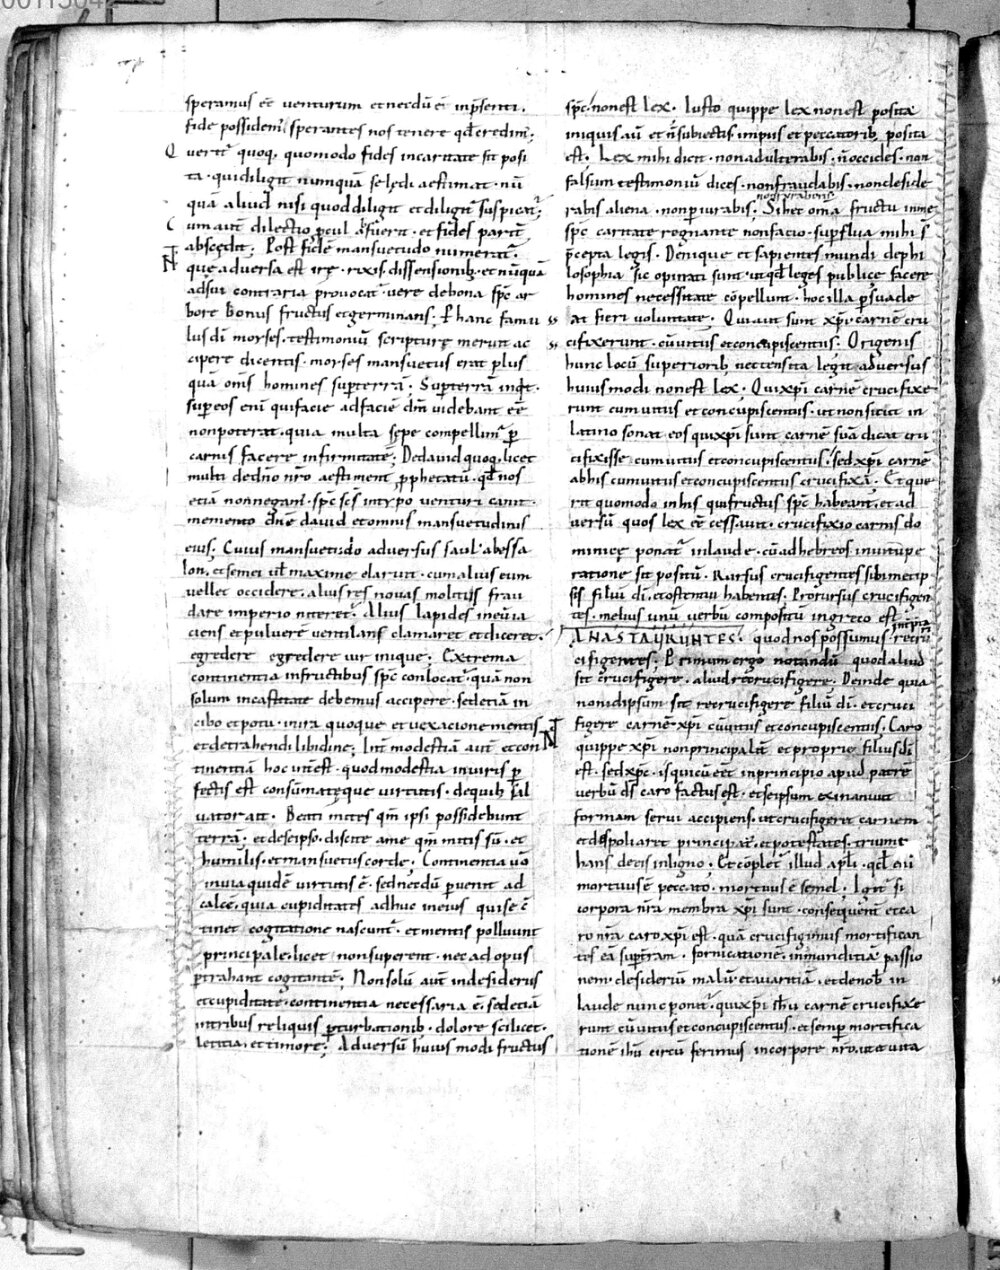 speramus eē venturum et necdū ē inp̄senti.
fide possidem᷒ sperantes nos tenere qđ credim᷒;
Querit᷒ quoq, quomodo fides in caritate sit posi
ta. qui diligit nunquā se lędi aestimat. nū
quā aliud nisi quod diligit et diligit᷒ suspicat᷒;
Cum aūt dilectio p̱cul abfuerit. et fides parit᷒
abscędit; Post fidē mansuetudo numerat᷒.
que adversa est irę. rixis. dissensionib; et nūquā
ad sui contraria provocat᷒ vere de bona sp̄c ar
bore bonus fructus et germinans; P hanc famu
lus dī morses. testimoniū scripturę meruit ac
cipere dicentis. morses mansuetus erat plus
quā om̄s homines sup terrā. Sup terrā inqt.
sup eos enī qui facie ad faciē dm̄ videbant eē
non poterat. quia multa sępe compellim᷒ p̱
carnis facere infirmitatē; De david quoq, licet
multi de dn̄o nr̄o aestiment p̱phetatū. qđ nos
etiā non negam᷒. sp̄c scs in typo venturi canit.
memento dn̄e david et omnis mansuetudinis
eius; Cuius mansuetudo adversus saul. abessa
lon. et semei ut̄ maxime claruit. cum alius eum
vellet occidere. alius res novas molitus frau
dare imperio niteret᷒. Alius lapides in eū ia
ciens et pulvere ventilans clamaret et diceret.
egredere egredere vir inique; Extrema
continentia in fructibus sp̄c conlocat᷒. quā non
solum in castitate debemus accipere. sed etiā in
cibo et potu. in ira quoque et vexacione mentis
et detrahendi libidine; Int̄ modestiā aūt et con
tinentiā hoc int̄est. quod modestia in viris p̱
fectis est consūmateque virtutis. de quib; sal
vator ait. Beati mites qm̄ ipsi possidebunt
terrā. et de se ipso. discite a me qm̄ mitis sū. et
humilis. et mansuetus corde; Continentia ūo
in via quidē virtutis ē. sed necdū p̱venit ad
calcē. quia cupiditates adhuc in eius qui se c̄
tinet cogitatione nascunt᷒. et mentis polluunt
principale. licet non superent. nec ad opus
p̱trahant cogitantē; Non solū aūt in desideriis
et cupiditate. continentia necessaria ē. sed etiā
in tribus reliquis p̱turbationib. dolore scilicet.
letitia. et timore; Adversū huius modi fructus
sp̄c. non est lex. Iusto quippe lex non est posita
iniquis aū et n̄ subiectis. impiis et peccatorib, posita
est. Lex mihi dicit. non adulterabis. n̄ occides. non
falsum testimoniū dices. non fraudabis. non deside
rabis aliena. non periurabis. Si hęc om̄a fructu in me
sp̄c caritate regnante non facio. sup̱flua mihi s̄
p̄cepta legis. Denique et sapientes mundi de phi
losophia sic opinati sunt. ut qđ leges publice facere
homines necessitate cōpellunt. hoc illa p̱suade
at fieri voluntate. Qui aūt sunt xp̄i. carnē cru
cifixerunt. cū vitiis et concupiscentiis. Origenis
hunc locū superiorib, nectens ita legit. adversus
huius modi non est lex. Qui xp̄i carnē crucifixe
runt cum vitiis et concupiscentiis. ut non sicut in
latino sonat eos qui xp̄i sunt carnē suā dicat cru
cifixisse cum vitiis et concupiscentiis. sed xp̄i carnē
ab his cum vitiis et concupiscentiis crucifixā. Et que
rit quomodo in his qui fructus sp̄c habeant. et ad
versū quos lex eē cessavit. crucifixio carnis do
minicę ponat᷒ in laude. cū ad hebreos in vitupe
ratione sit positū. Rursus crucifigentes sibimetip
sis filiū dī. et ostentui habentes. Prorursus crucifigen
tes. melius unū verbū compositū in greco est
ANASTAURUNTES. quod nos possumus recru
cifigentes; Primum ergo notandū quod aliud
sit crucifigere. aliud recrucifigere. Deinde quia
non id ipsum sit recrucifigere filiū dī. et cruci
figere carnē xp̄i cū vitiis et concupiscentiis. Caro
quippe xp̄i non principalit᷒ et proprie filius dī
est. sed xp̄c. is qui cū eēt in principio apud patrē
verbū dš caro factus est. et se ipsum exinanivit
formam servi accipiens. ut crucifigeret carnem
et despoliaret principat᷒. et potestates. trium
hans de eis in ligno. Et cōplet᷒ illud apli. qđ eni
mortuus ē peccato. mortuus ē semel. Igit᷒ si
corpora nr̄a membra xp̄i sunt. consequent᷒ et ca
ro nr̄a caro xp̄i est. quā crucifigimus mortifican
tes eā sup̱ terram. fornicationē. inmunditiā. passio
nem. desideriū malū. et avaritiā. et de nob̄ in
laude nunc ponit᷒. qui xp̄i ih̄u carnē crucifixe
runt cū vitiis et concupiscentiis. et semp̱ mortifica
tionē ih̄u circū ferimus in corpore nr̄o. ut et vita